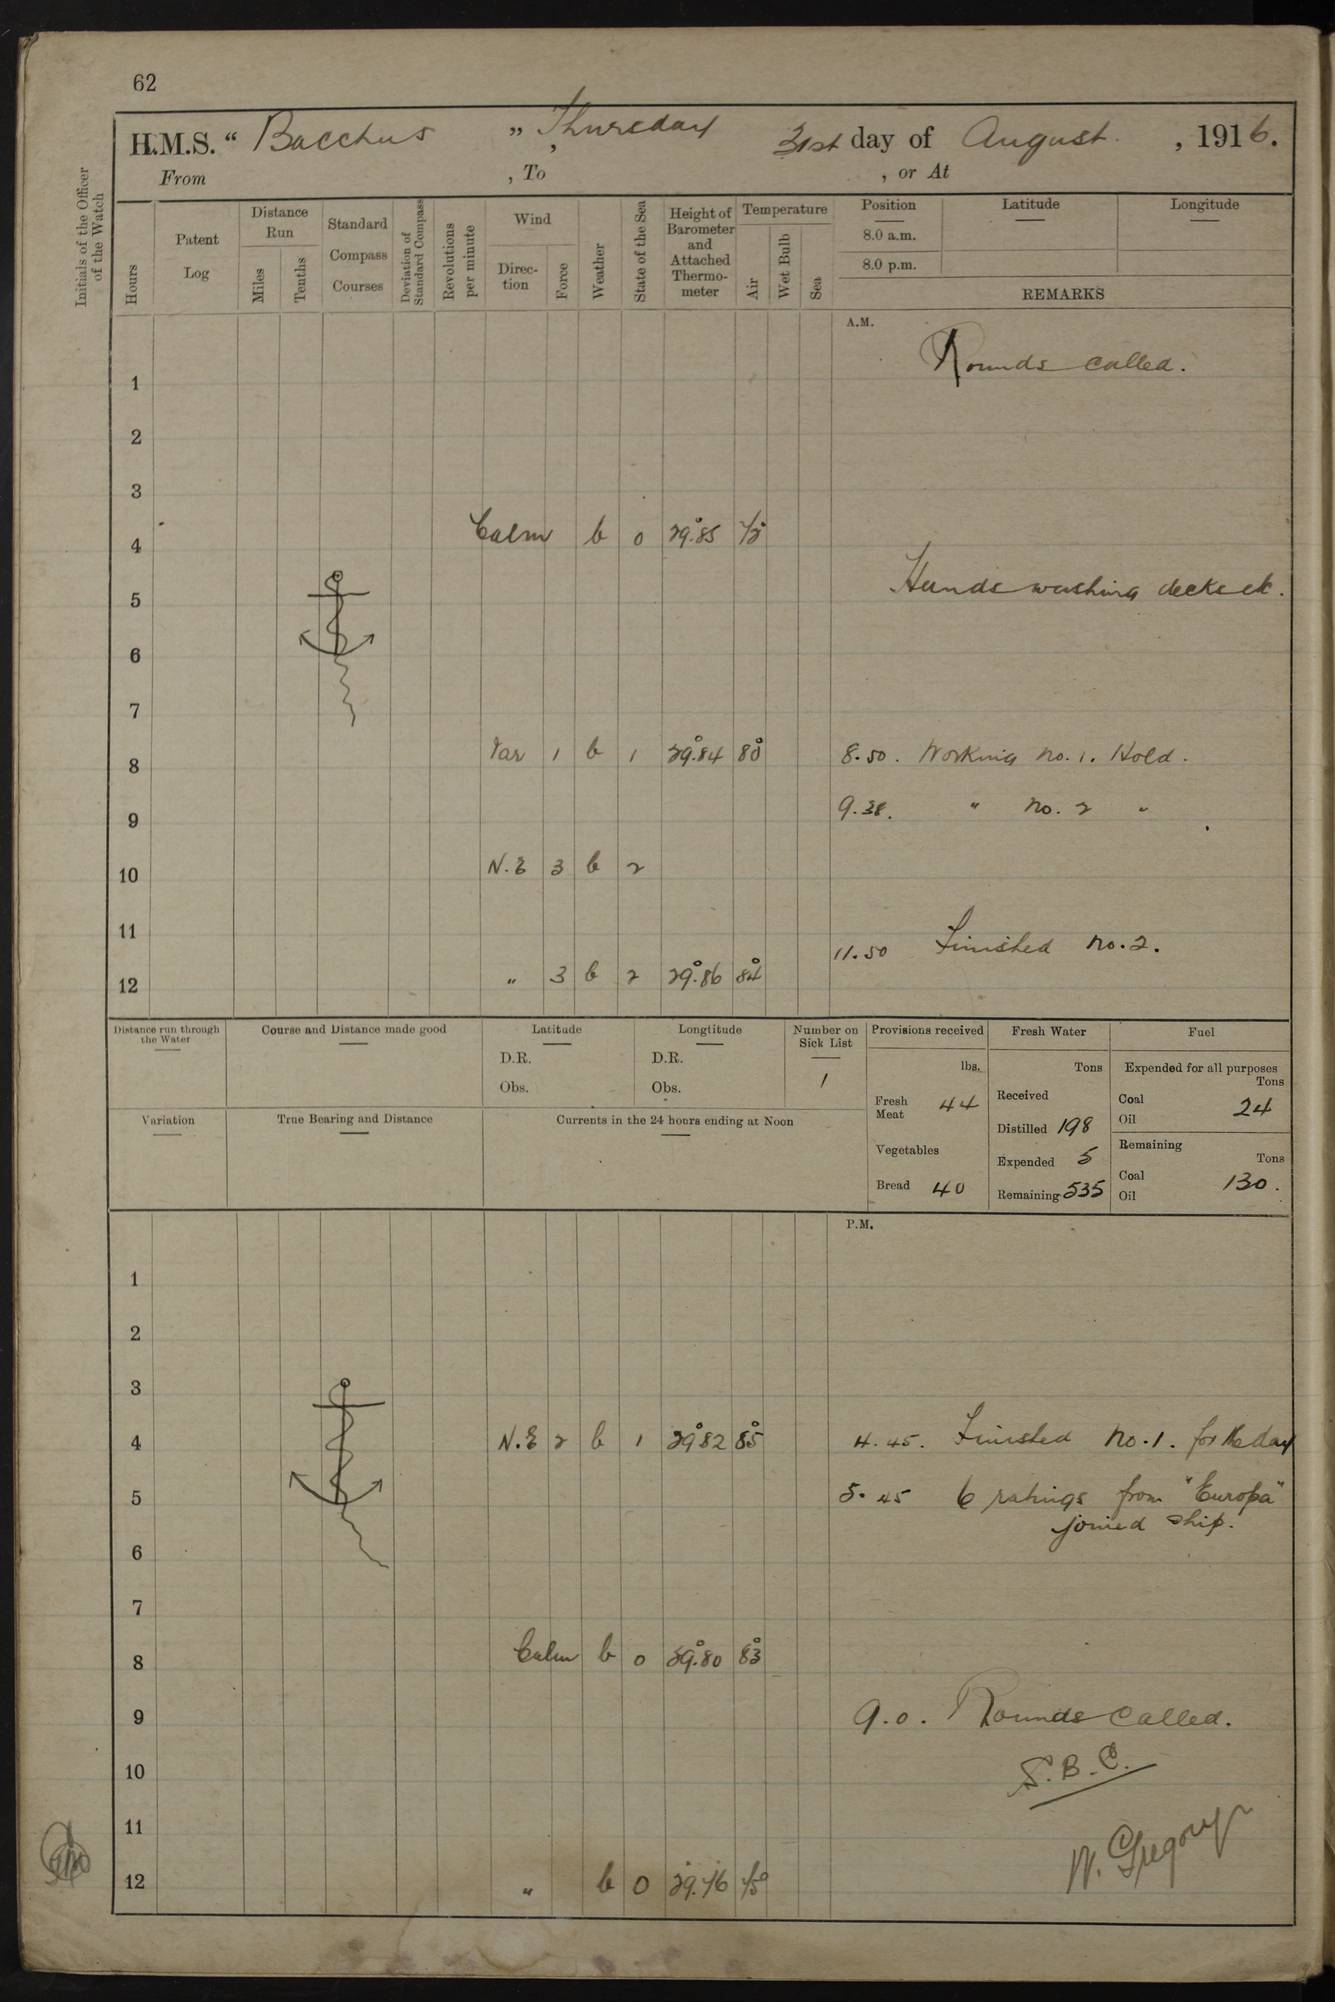 62
H.M.S. “ Bacchus ” Thursday , 31st day of August , 1916.
From , To , or At
Initials of the Officer of the Watch
Hours
Patent Log
Distance Run
Miles
Tenths
Standard Compass Courses
Deviation of Standard Compass
Revolutions per minute
Wind
Direction
Force
Weather
State of the Sea
Height of Barometer and Attached Thermometer
Temperature
Air
Wet Bulb
Sea
Position
8.0 a.m.
8.0 p.m.
Latitude
Longitude
REMARKS
A.M.
Rounds called.
1
2
3
4 Calm b 0 29.85 75
Hands washing decks etc.
5
6
7
8 Var 1 b 1 29.84 80 8.50. Working No. 1. Hold.
9 9.38. " No. 2 "
10 N.E 3 b 2
11 11.50 Finished No. 2.
12 " 3 b 2 29.86 84
Distance run through the Water
Course and Distance made good
Latitude
D.R.
Obs.
Longtitude
D.R.
Obs.
Number on Sick List
1
Provisions received
lbs.
Fresh Meat 44
Vegetables
Bread 40
Fresh Water
Tons
Received
Distilled 198
Expended 5
Remaining 535
Fuel
Expended for all purposes
Tons
Coal 24
Oil
Remaining
Tons
Coal 130.
Oil
Variation
True Bearing and Distance
Currents in the 24 hours ending at Noon
P.M.
1
2
3
4 N.E 2 b 1 29.82 85 4.45. Finished No. 1. for the day
5 5.45 6 ratings from "Europa"
joined ship.
6
7
8 Calm b 0 29.80 83
9 9.0. Rounds Called.
10 S.B.C.
11 W. Gregory
12 " b 0 29.76 75